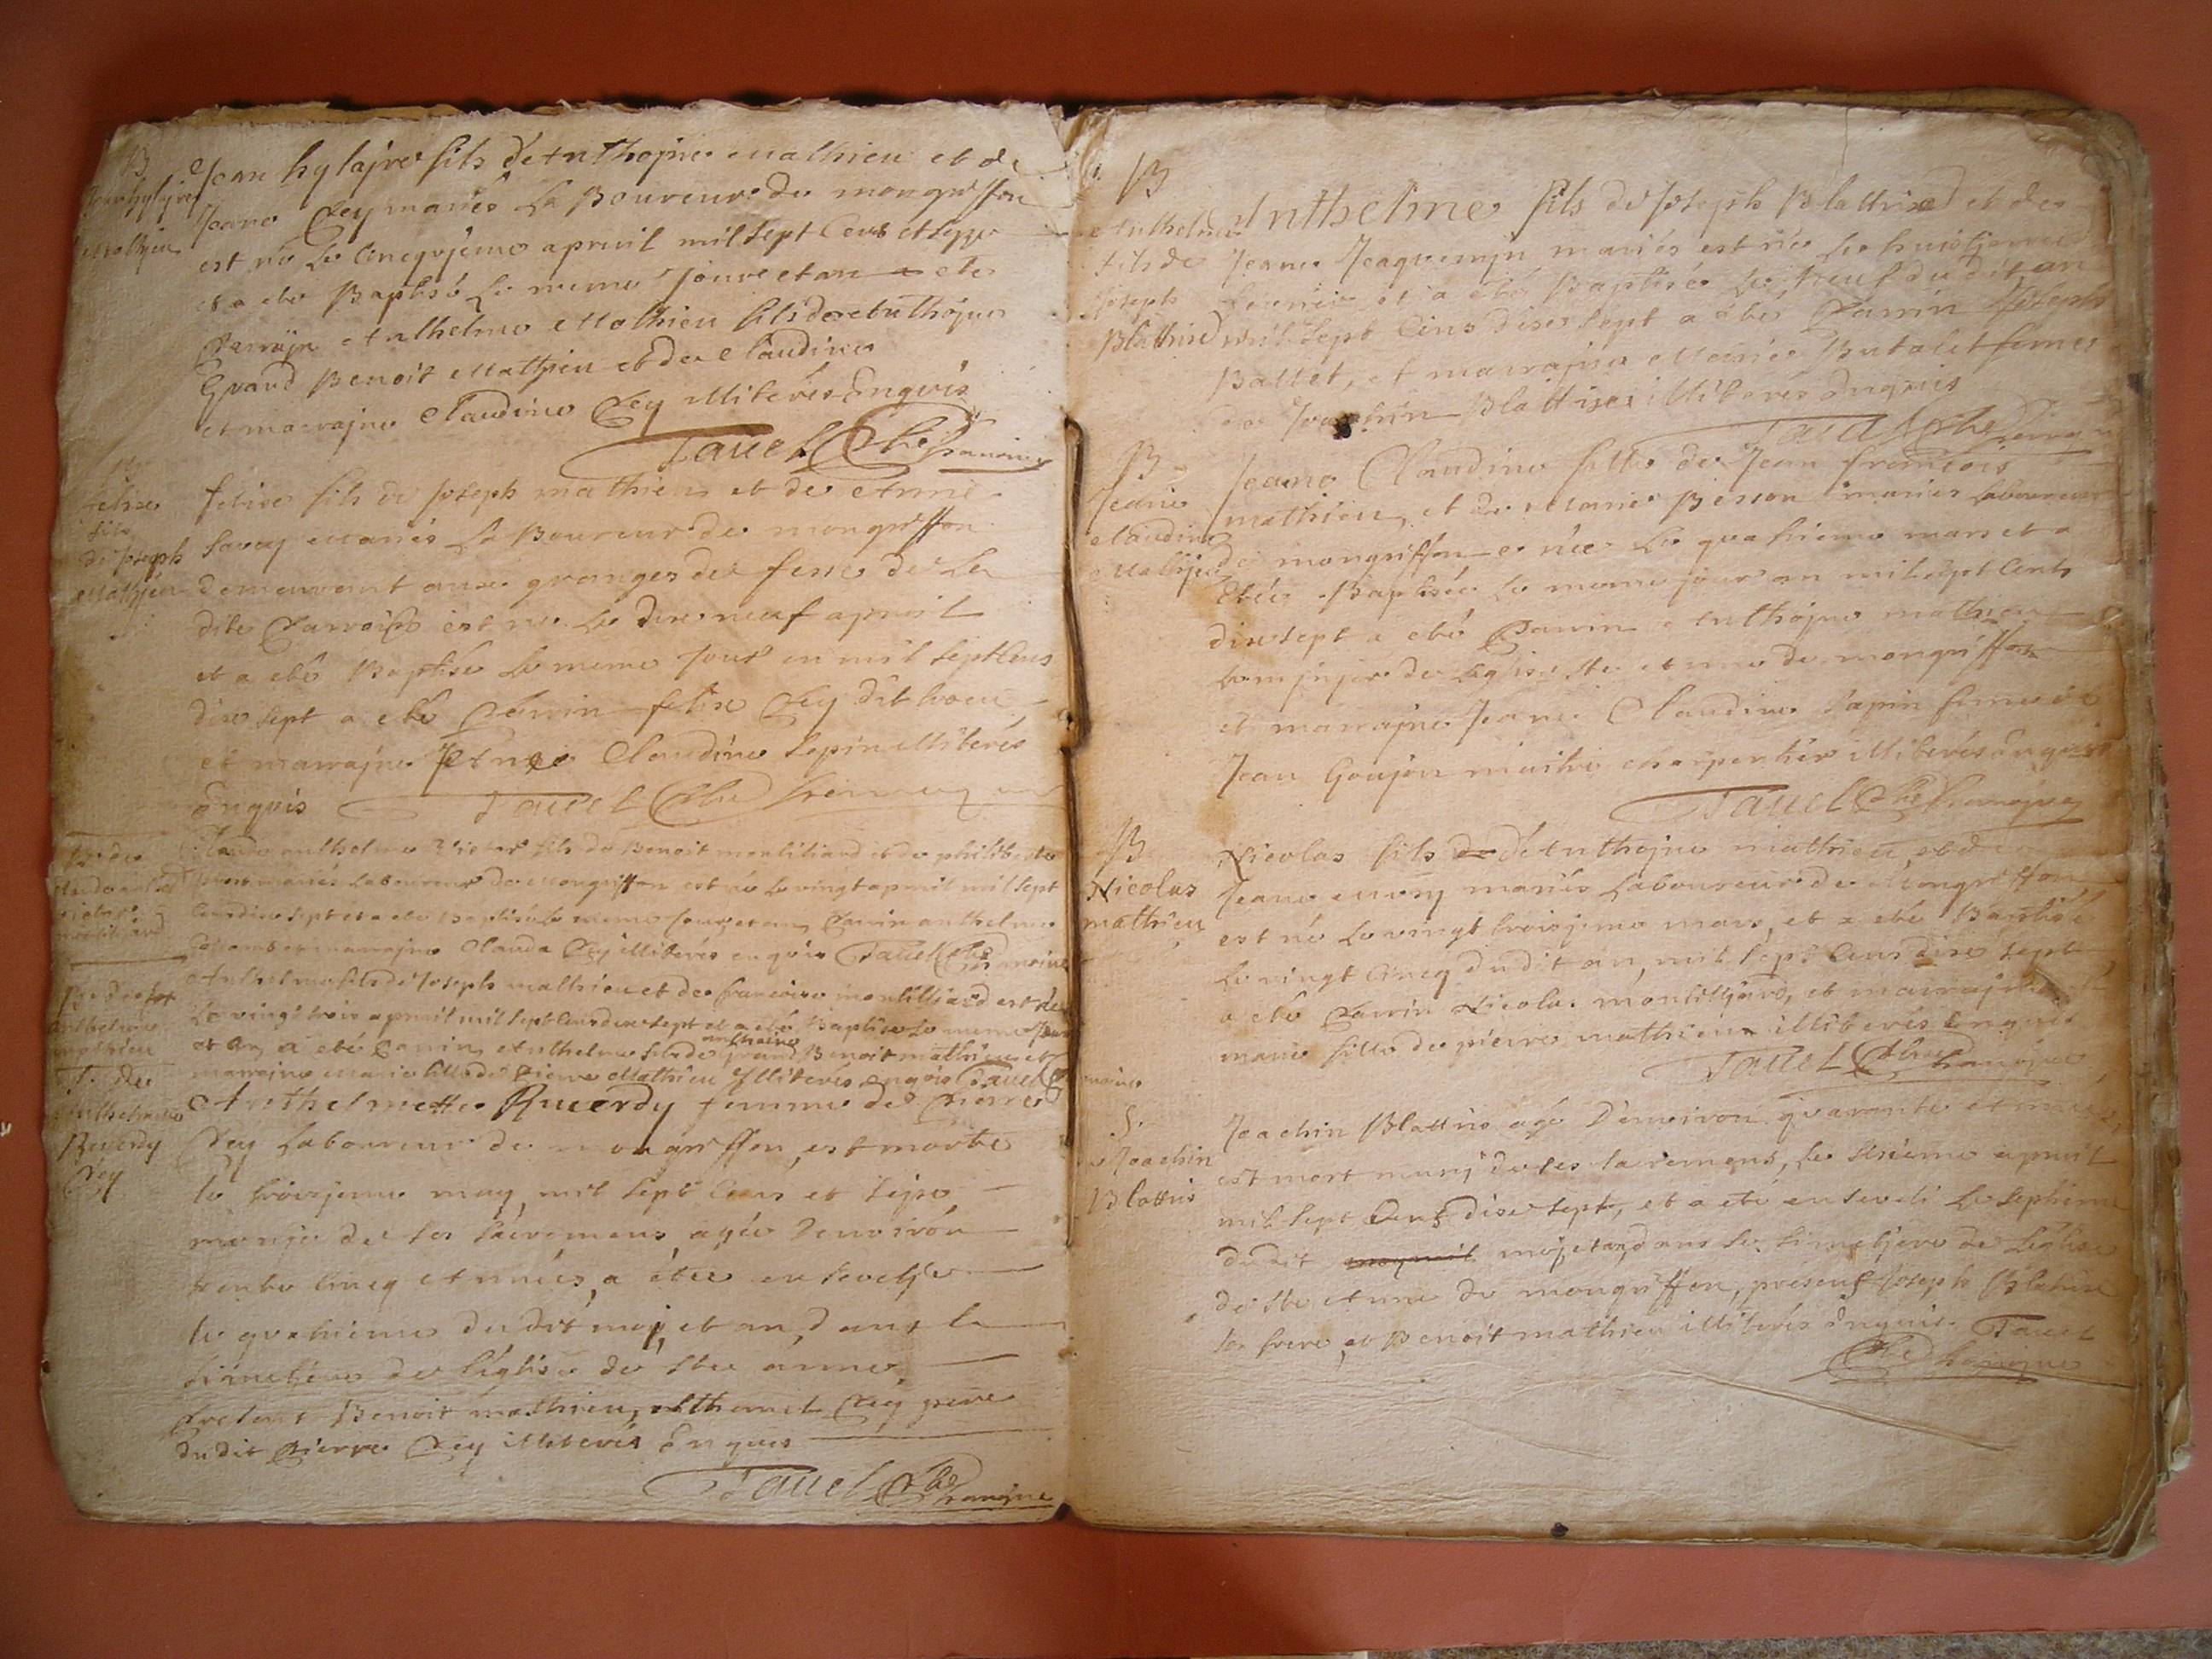 B
Jean hylajre
mathieu
Jean hylajre fils d'Anthojne mathieu et de
Jeane Pey mariés La Boureur de mongriffon
est né Le cinqvjeme apruil mil sept Cens et sezze
et a eté Baptisé Le meme jour et an a eté
Parrajn Anthelme Mathieu fils de Anthojne
Grand Benoit Mathieu et de Claudine
et marajne Claudine Pey illiterés Enqvis
Tavel Pbre
felixe
fils
de Joseph
Mathieu
felixe fils de Joseph mathieu et de Anne
Savey Mariés La Boureur de mongriffon
demeurant aux granges des fesse de La
dite Parroisse est né Le dixe neuf apruil
et a eté Baptisé Le meme Jour en mil sept Cens
dixe sept a eté Parrin felixe Pey dit
et marrajne Anne Claudine Sapin illiterés
Enqvis Tavel Pbre
Claude anthelme Victor fils de Benoit montilliard et de philiberte
mariés Laboureur de Mongriffon est né Le vingt apruil mil sept
Cens dixe sept et a eté Baptisé Le meme Jour et an Parrin anthelme
et marrajne Clauda Pey illiterés enqvis Tavel Pbre
anthelme
mathieu
Anthelme fils de Joseph mathieu et de francoise montilliard est né
Le vingt trois apruil mil sept Cens dixe sept et a eté Baptisé Le meme Jour
anthoine
et an, a eté Parrin Anthelme fils de Grand Benoit mathieu et
marrajne Marie fille de Pierre Mathieu Illiterés enqvis Tavel
Anthelmette
Reverdy
Pey
Anthelmette Reverdy femme de Pierre
Pey Laboureur de mongriffon, est morte
le troisjeme may, mil sept Cens et sejse
munje de ses sacremens, agée d'environ
trente cincq Années, a étée enseveljе
le quatrieme du dit moj, et an, dans le
simetiere de l'églisse de Ste anne,
Presens Benoit mathieu, Pey pere
du dit Pierre Pey illiterés Enqves
Tavel Pbre
B
Anthelme
fils de
Joseph
Blattrixe
Anthelme fils de Joseph Blattrixe et de
Jeane Jeaquemjn mariés est née Le huictjeme
fevrie et a eté Baptisée Le Neuf du dit an
mil sept Cens dixe sept a eté Parrin Joseph
Ballet, et marrajne Marie Butalet feme
de Joachin Blattixe illiterés Enqvis
Tavel Pbre
B
Jeane
claudine
Mathieu
Jeane Claudine fille de Jean francois
mathieu, et de Marie Besson mariés Laboureur
de mongriffon e née Le quatrieme mars et a
Etée Baptisée Le meme jour an mil sept Cents
dixe sept a eté Parrin Anthojne mathieu
de Léglise Ste Anne de mongriffon
et marrajne Jeane Claudine Sapin feme de
Jean Goujon maitre charpentier illiterés Enquis
Tavel Pbre
B
Nicolas
mathieu
Nicolas fils de d'Anthojne mathieu, et de
Jeane mariés Laboureur de Mongriffon
est né Le vingt troisjeme mars, et a eté Baptisé
Le vingt cincq du dit an, mil sept Cens dixe sept
a eté Parrin Nicolas montilljard, et marrajne
marie fille de pierre mathieu illiterés Enqvis
Tavel Pbre
S.
Joachin
Blattris
Joachin Blattris agé D'environ quarante Annés,
est mort munj de ses sacremens, Le sixieme apruil
mil sept Cens dixe sept, et a eté enseveli Le septieme
du dit moj, et an, dans Le simetjere de L'église
de Ste Anne de mongriffon, presens Joseph Blatrixe
son frere, et Benoit mathieu illiterés Enquis. Tavel
Pbre